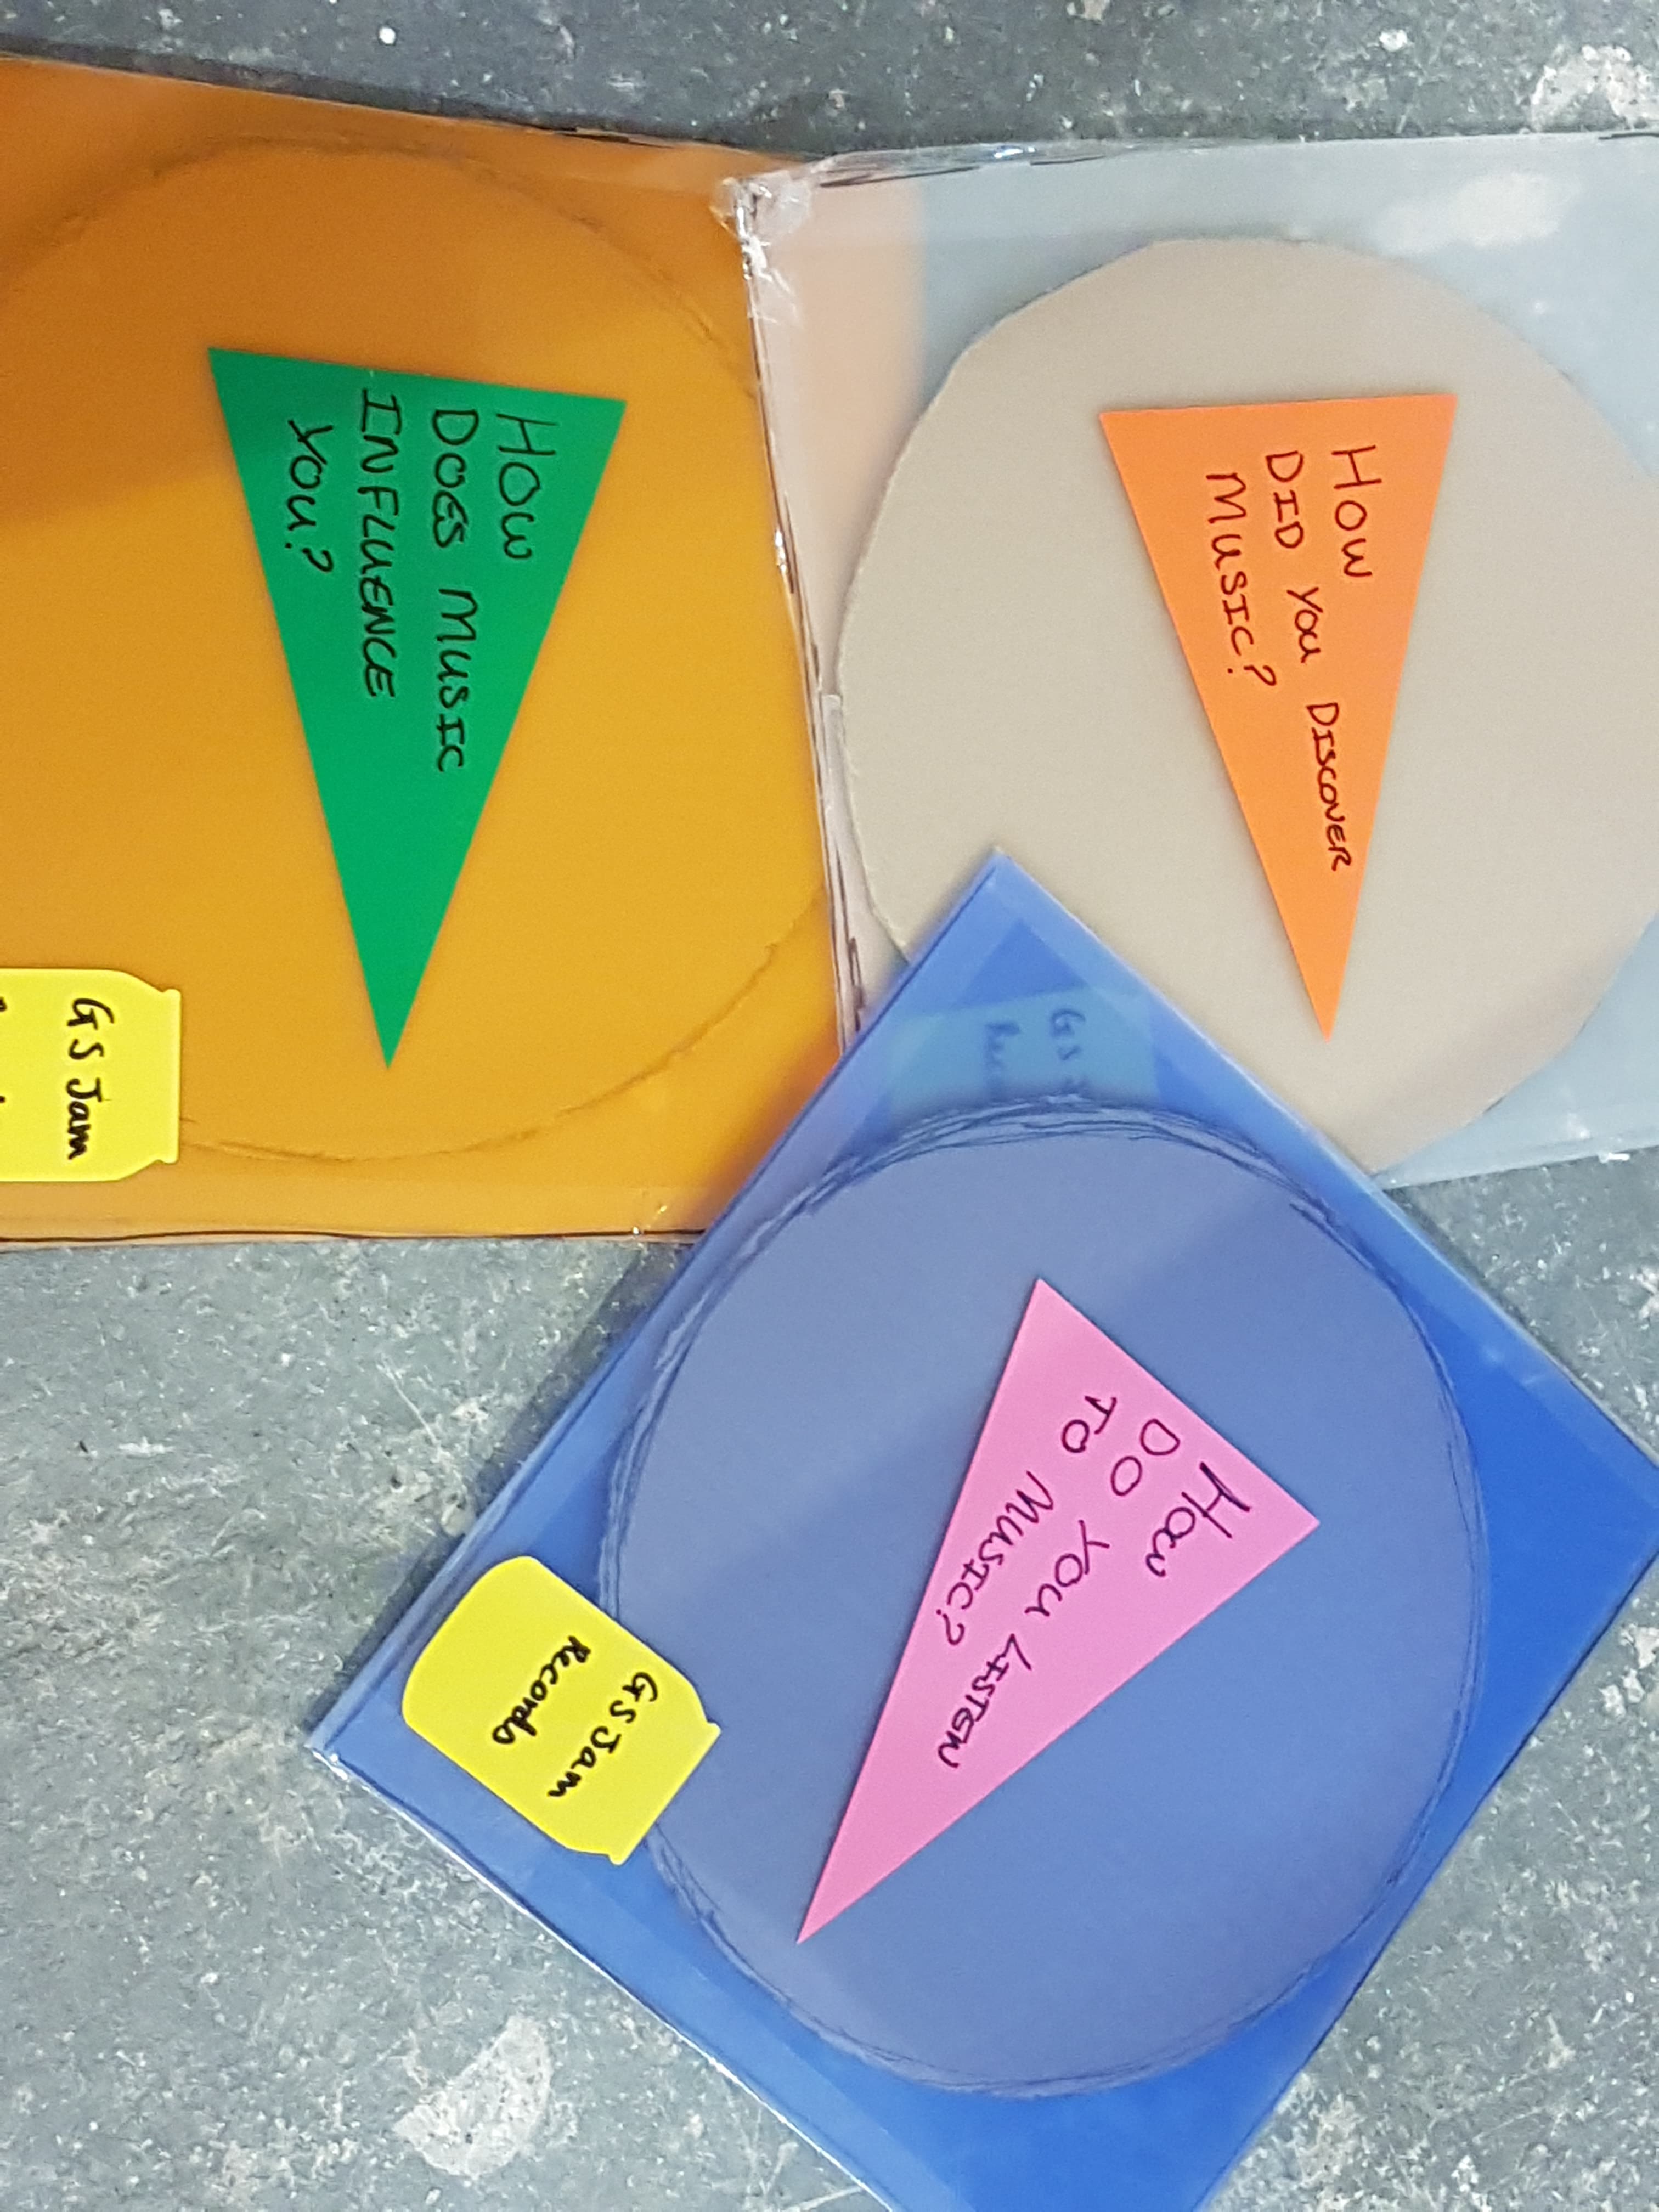 How
DID YOU DISCOVER
MUSIC?
How
DO YOU LISTEN
TO MUSIC?
GS J
GS Jam
Records
How
DOES MUSIC
INFLUENCE
YOU?
GS Jam